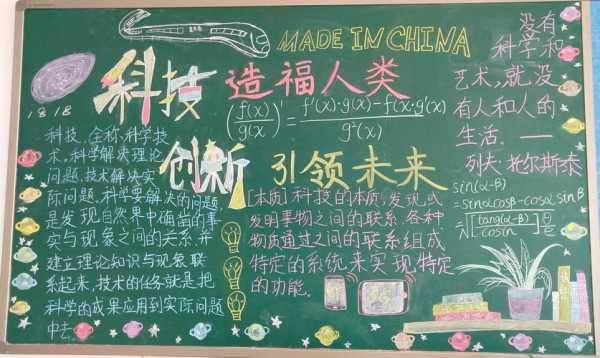 MADE IN CHINA
科技 造福人类
1818
(f(x)/g(x))' = f'(x)·g(x)-f(x)·g'(x)/g²(x)
创新 引领未来
科技,全称科学技
术,科学解决理论
问题,技术解决实
际问题,科学要解决的问题
是发现自然界中确凿的事
实与现象之间的关系,并
建立理论知识与现象联
系起来,技术的任务就是把
科学的成果应用到实际问题
中去。
[本质]科技的本质:发现或
发明事物之间的联系,各种
物质通过之间的联系组成
特定的系统来实现特定
的功能。
没有
科学和
艺术,就没
有人和人的
生活。——
列夫·托尔斯泰
sin(α-β)
=sinαcosβ-cosα sinβ